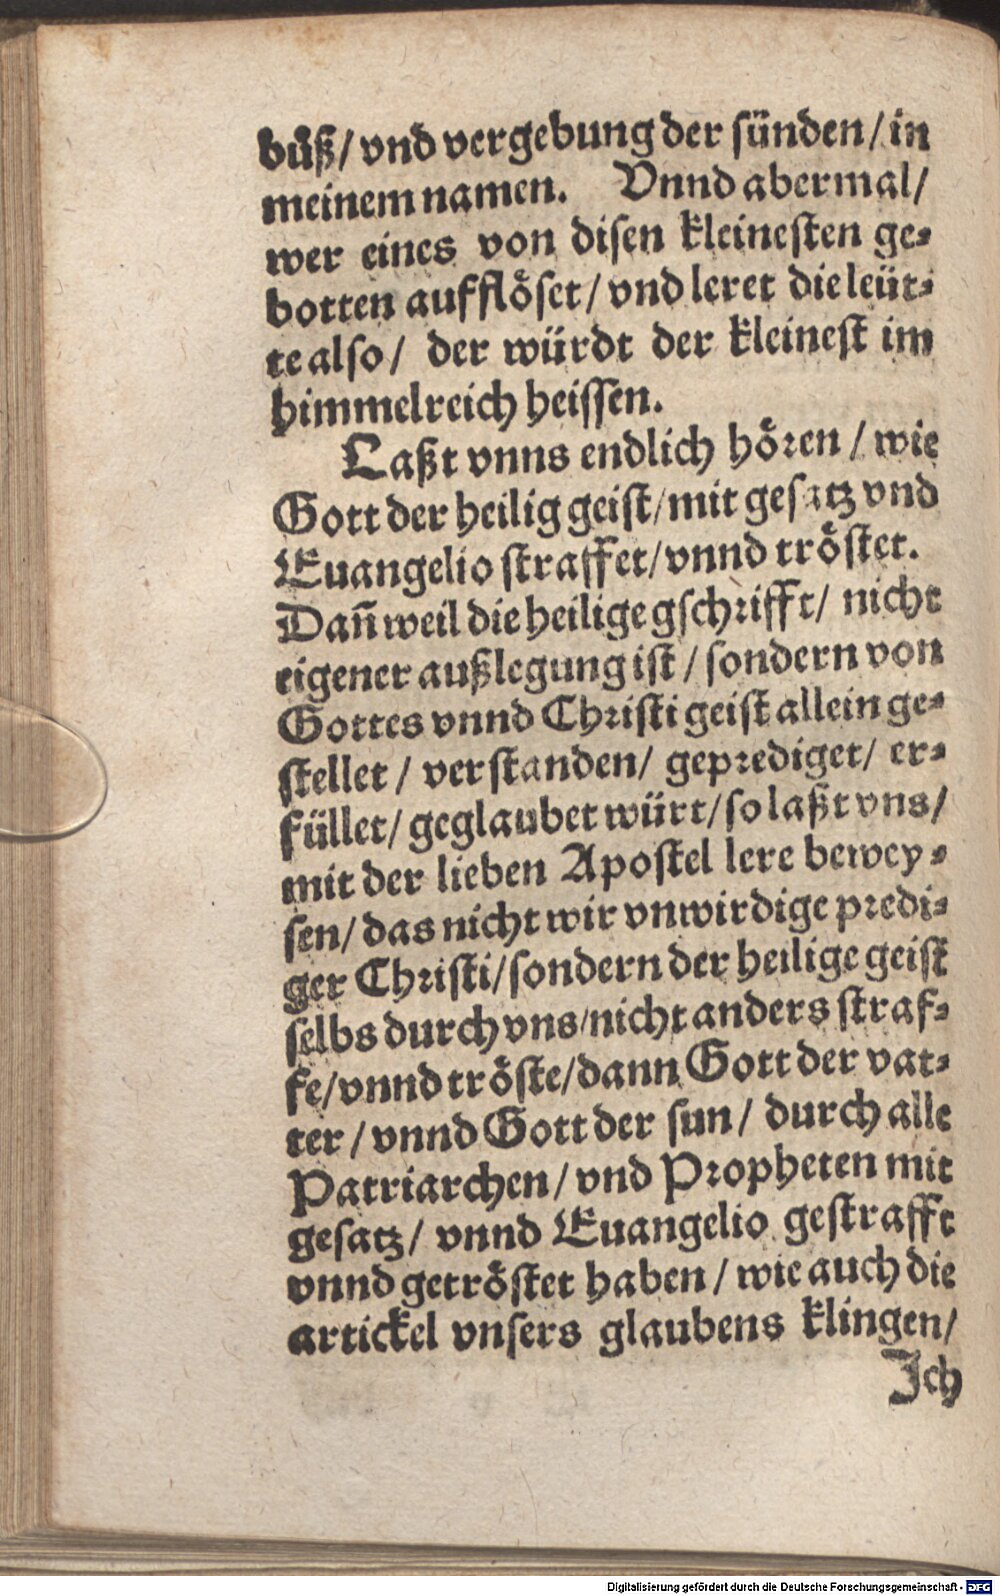 bůß/ vnd vergebung der sünden/ in
meinem namen. Vnnd abermal/
wer eines von disen kleinesten ge⸗
botten aufflöset/ vnd leret die leüt⸗
te also/ der würdt der kleinest im
himmelreich heissen.
Laßt vnns endlich hören/ wie
Gott der heilig geist/ mit gesatz vnd
Euangelio straffet/ vnnd tröstet.
Dañ weil die heilige gschrifft/ nicht
eigener außlegung ist/ sondern von
Gottes vnnd Christi geist allein ge⸗
stellet/ verstanden/ geprediget/ er⸗
füllet/ geglaubet würt/ so laßt vns/
mit der lieben Apostel lere bewey⸗
sen/ das nicht wir vnwirdige predi⸗
ger Christi/ sondern der heilige geist
selbs durch vns/ nicht anders straf⸗
fe/ vnnd tröste/ dann Gott der vat⸗
ter/ vnnd Gott der sun/ durch alle
Patriarchen/ vnd Propheten mit
gesatz/ vnnd Euangelio gestrafft
vnnd getröstet haben/ wie auch die
artickel vnsers glaubens klingen/
Ich
Digitalisierung gefördert durch die Deutsche Forschungsgemeinschaft - DFG